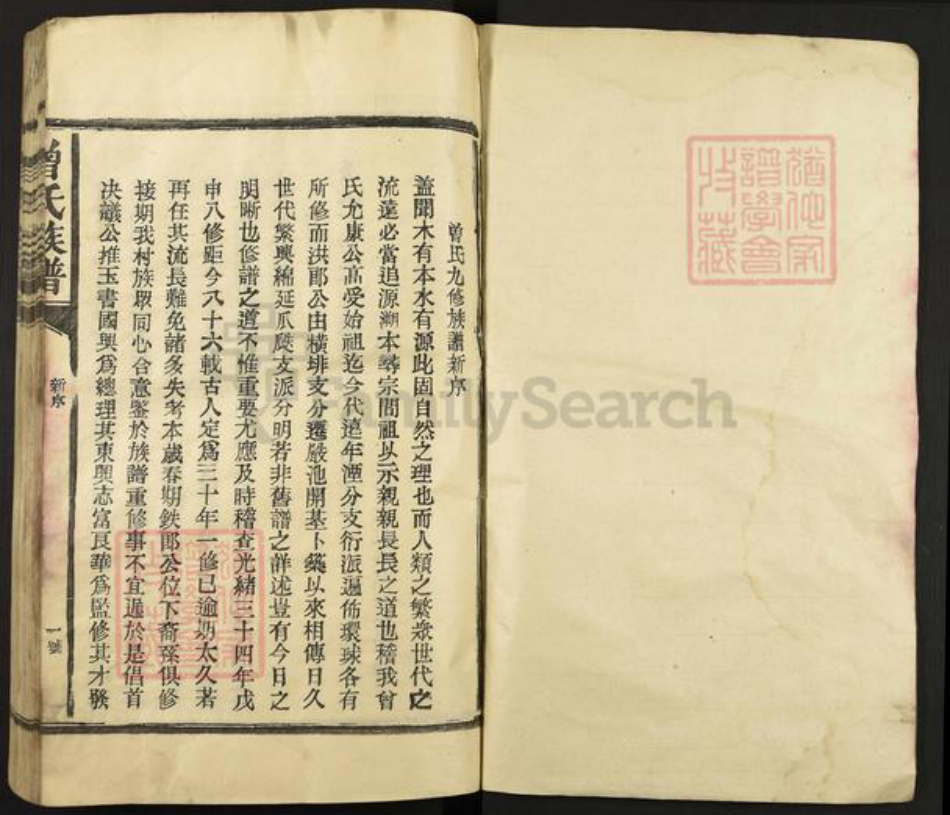 猶他家
譜學會
收藏
曾氏九修族譜新序
蓋聞木有本水有源此固自然之理也而人類之繁衆世代之
流遠必當追源溯本尋宗問祖以示親親長長之道也稽我曾
氏允康公髙受始祖迄今代遠年湮分支衍派遍佈環球各有
所修而洪郎公由橫排支分遷嚴池開基卜築以來相傳日久
世代繁興綿延瓜瓞支派分明若非舊譜之詳述豈有今日之
明晰也修譜之道不惟重要尤應及時稽查光緒三十四年戊
申八修距今八十六載古人定爲三十年一修已逾期太久若
再任其流長難免諸多失考本歲春期鉄郎公位下裔孫俱修
接期我村族眾同心合意鑒於族譜重修事不宜遲於是倡首
決議公推玉書國興爲總理其東興志富良華爲監修其才發
曾氏族譜
新序
一號
FamilySearch